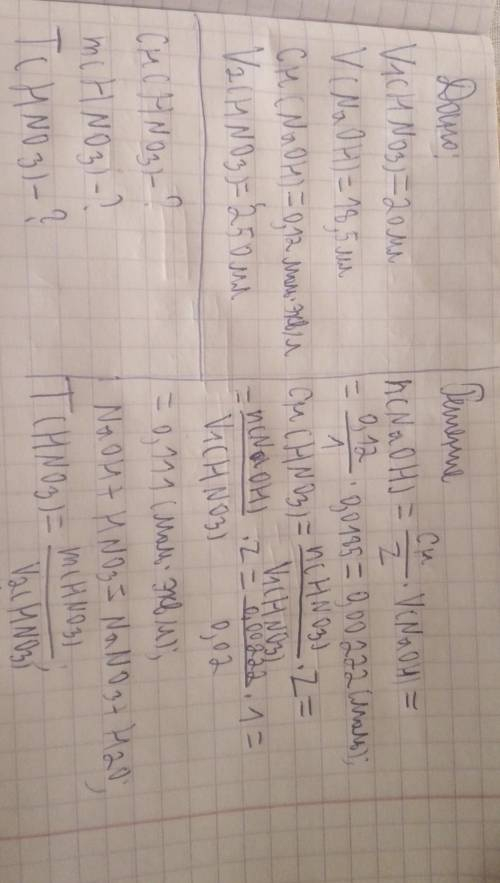 Дано:
V1(HNO3)=20мл
V(NaOH)=18,5мл
Cн(NaOH)=0,12 моль·экв/л
V2(HNO3)=250мл
Cн(HNO3)-?
m(HNO3)-?
T(HNO3)-?
Решение
n(NaOH) = Cн/Z · V(NaOH) =
= 0,12/1 · 0,0185 = 0,00222(моль);
Cн(HNO3) = n(HNO3)/V1(HNO3) · Z =
= n(NaOH)/V1(HNO3) · Z = 0,00222/0,02 · 1 =
= 0,111 (моль·экв/л);
NaOH + HNO3 = NaNO3 + H2O;
T(HNO3) = m(HNO3)/V2(HNO3)